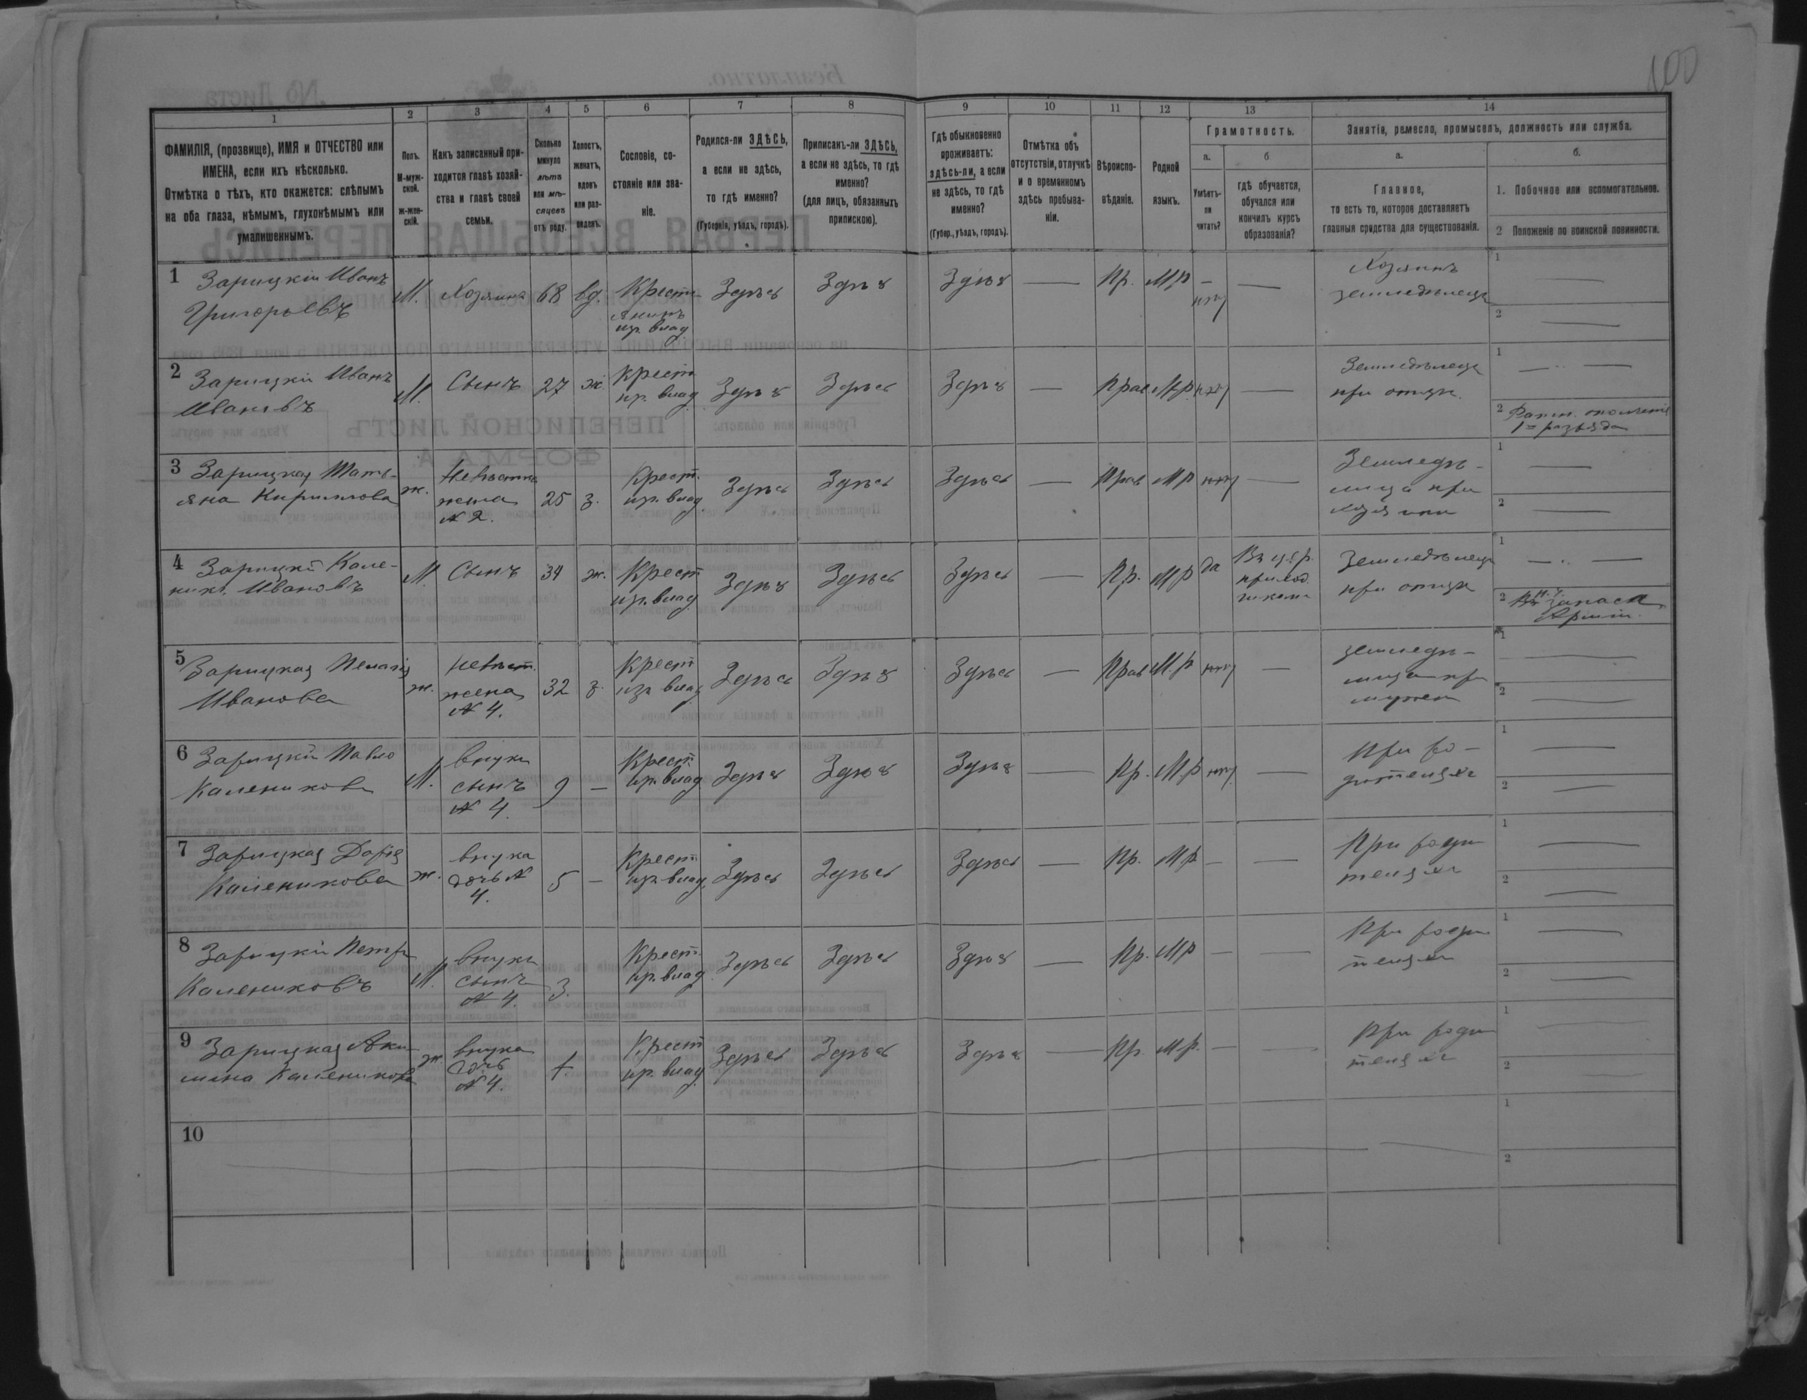 100
1 2 3 4 5 6 7 8 9 10 11 12 13 14
ФАМИЛІЯ, (прозвище), ИМЯ и ОТЧЕСТВО или
ИМЕНА, если ихъ нѣсколько.
Отмѣтка о тѣхъ, кто окажется: слѣпымъ
на оба глаза, нѣмымъ, глухонѣмымъ или
умалишеннымъ.
Полъ.
М-муж-
ской.
ж-жен-
скій.
Какъ записанный при-
ходится главѣ хозяй-
ства и главѣ своей
семьи.
Сколько
минуло
лѣтъ
или мѣ-
сяцевъ
отъ роду.
Холостъ,
женатъ,
вдовъ
или раз-
веденъ.
Сословіе, со-
стояніе или зва-
ніе.
Родился-ли ЗДѢСЬ,
а если не здѣсь,
то гдѣ именно?
(Губернія, уѣздъ, городъ).
Приписанъ-ли ЗДѢСЬ,
а если не здѣсь, то гдѣ
именно?
(для лицъ, обязанныхъ
припискою).
Гдѣ обыкновенно
проживаетъ:
здѣсь-ли, а если
не здѣсь, то гдѣ
именно?
(Губер., уѣздъ, городъ).
Отмѣтка объ
отсутствіи, отлучкѣ
и о временномъ
здѣсь пребыва-
ніи.
Вѣроиспо-
вѣданіе.
Родной
языкъ.
Грамотность.
а.
Умѣетъ-
ли
читать?
б
гдѣ обучается,
обучался или
кончилъ курсъ
образованія?
Занятіе, ремесло, промыселъ, должность или служба.
а.
Главное,
то есть то, которое доставляетъ
главныя средства для существованія.
б.
1. Побочное или вспомогательное.
2 Положеніе по воинской повинности.
1 Зарицкій Иванъ
Григорьевъ
М. Хозяинъ 68 вд. Крест.
из. влад
Здѣсь Здѣсь Здѣсь — Пр. М.р — нѣт —
Хозяинъ
земледѣлецъ
1 —
2 —
2 Зарицкій Иванъ
Ивановъ
М. Сынъ 27 ж. Крест
из. влад
Здѣсь Здѣсь Здѣсь — Прав М.р нѣт —
Земледѣлецъ
при отцѣ.
1 —
2 Ратн. ополченія
1го разряда
3 Зарицкая Тать-
яна Кириллова
ж. Невѣстка
жена
№ 2.
25 з. Крест.
из. влад
Здѣсь Здѣсь Здѣсь — Прав М.р нѣт —
Земледѣ-
лица при
1 —
2 —
4 Зарицкій Кале-
никъ Ивановъ
М Сынъ 34 ж. Крест
из. влад
Здѣсь Здѣсь Здѣсь — Пр. М.р да
Въ цер.
приход.
школѣ
Земледѣлецъ
при отцѣ
1 —
2 Въ запасѣ
Арміи.
5 Зарицкая Пелагія
Иванова
ж. невѣст.
жена
№ 4.
32 з. Крест
из. влад
Здѣсь Здѣсь Здѣсь — Прав М.р нѣт —
земледѣ-
лица при
мужѣ
1 —
2 —
6 Зарицкій Павло
Калениковъ
М. внукъ
сынъ
№ 4.
9 — Крест
из. влад
Здѣсь Здѣсь Здѣсь — Пр. М.р нѣт —
При ро-
дителяхъ
1 —
2 —
7 Зарицкая Дарія
Каленикова
ж. внука
дочь №
4.
5 — Крест
из. влад.
Здѣсь Здѣсь Здѣсь — Пр. М.р — —
При роди
теляхъ
1 —
2 —
8 Зарицкій Петръ
Калениковъ
М. внукъ
сынъ
№ 4.
3. Крест
из. влад
Здѣсь Здѣсь Здѣсь — Пр. М.р — —
При роди
теляхъ
1 —
2 —
9 Зарицкая Аки-
лина Каленикова
ж внука
дочь
№ 4.
Крест
из. влад
Здѣсь Здѣсь Здѣсь — Пр М.р. — —
При роди
теляхъ
1 —
2 —
10
1
2